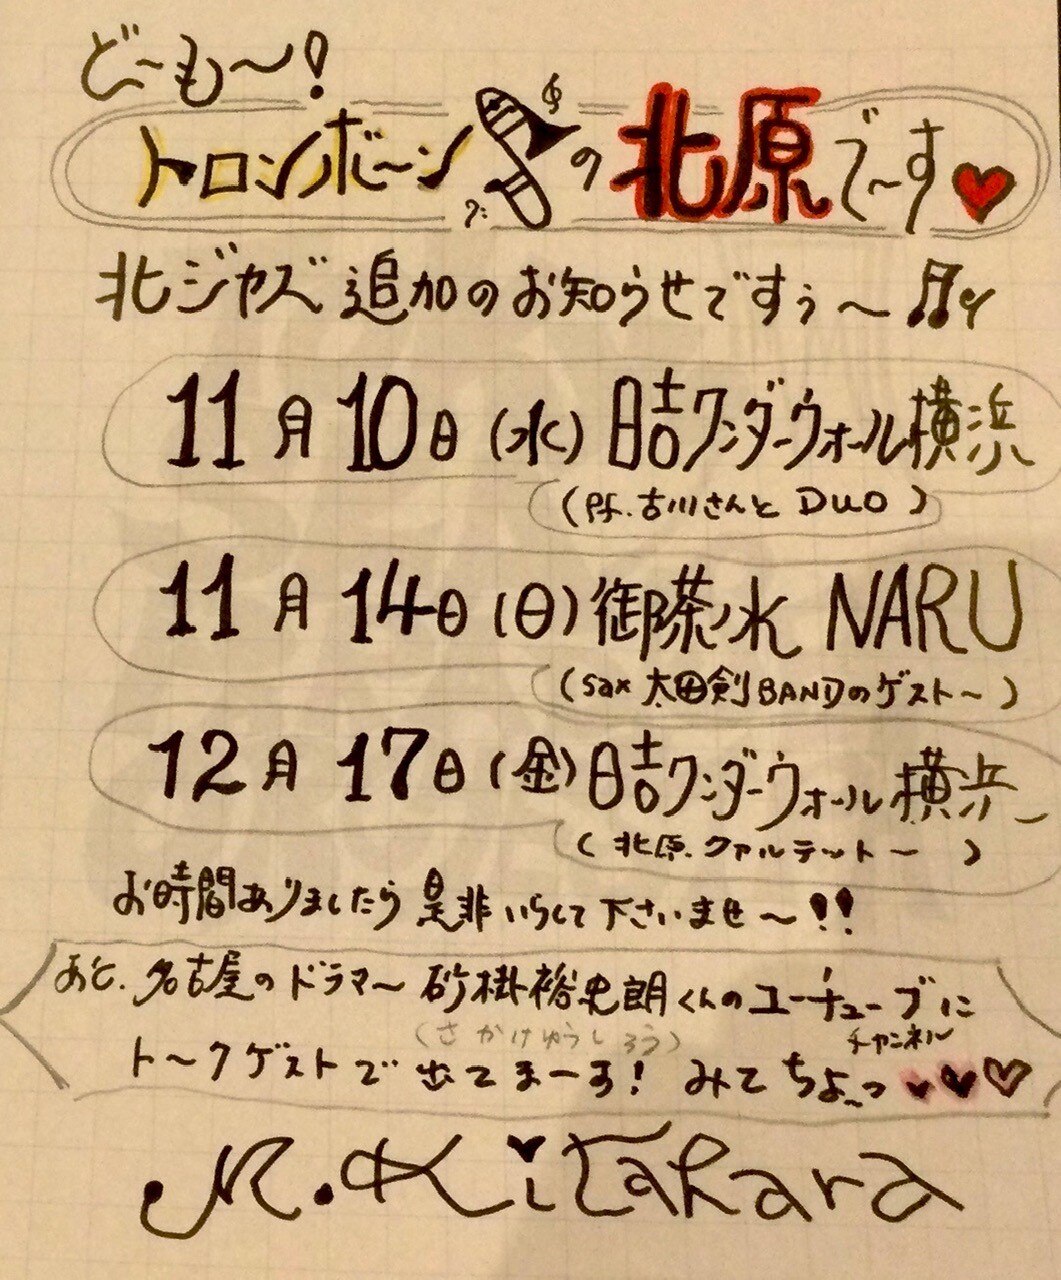 ど〜も〜!
トロンボ〜ンの北原で〜す♥
北ジャズ追加のお知らせですぅ〜♫
11月10日(水)日吉ワンダーウォール横浜
(Pf.古川さんとDUO)
11月14日(日)御茶ノ水 NARU
(sax 太田剣BANDのゲスト〜)
12月17日(金)日吉ワンダーウォール横浜
(北原.クァルテット〜)
お時間ありましたら是非いらして下さいませ〜!!
あと、名古屋のドラマ〜砂掛裕史朗くんのユーチューブに
(さかけゆうしろう) チャンネル
ト〜クゲストで出てまーす! みてちょ〜っ♥♥♡
M.Kitahara